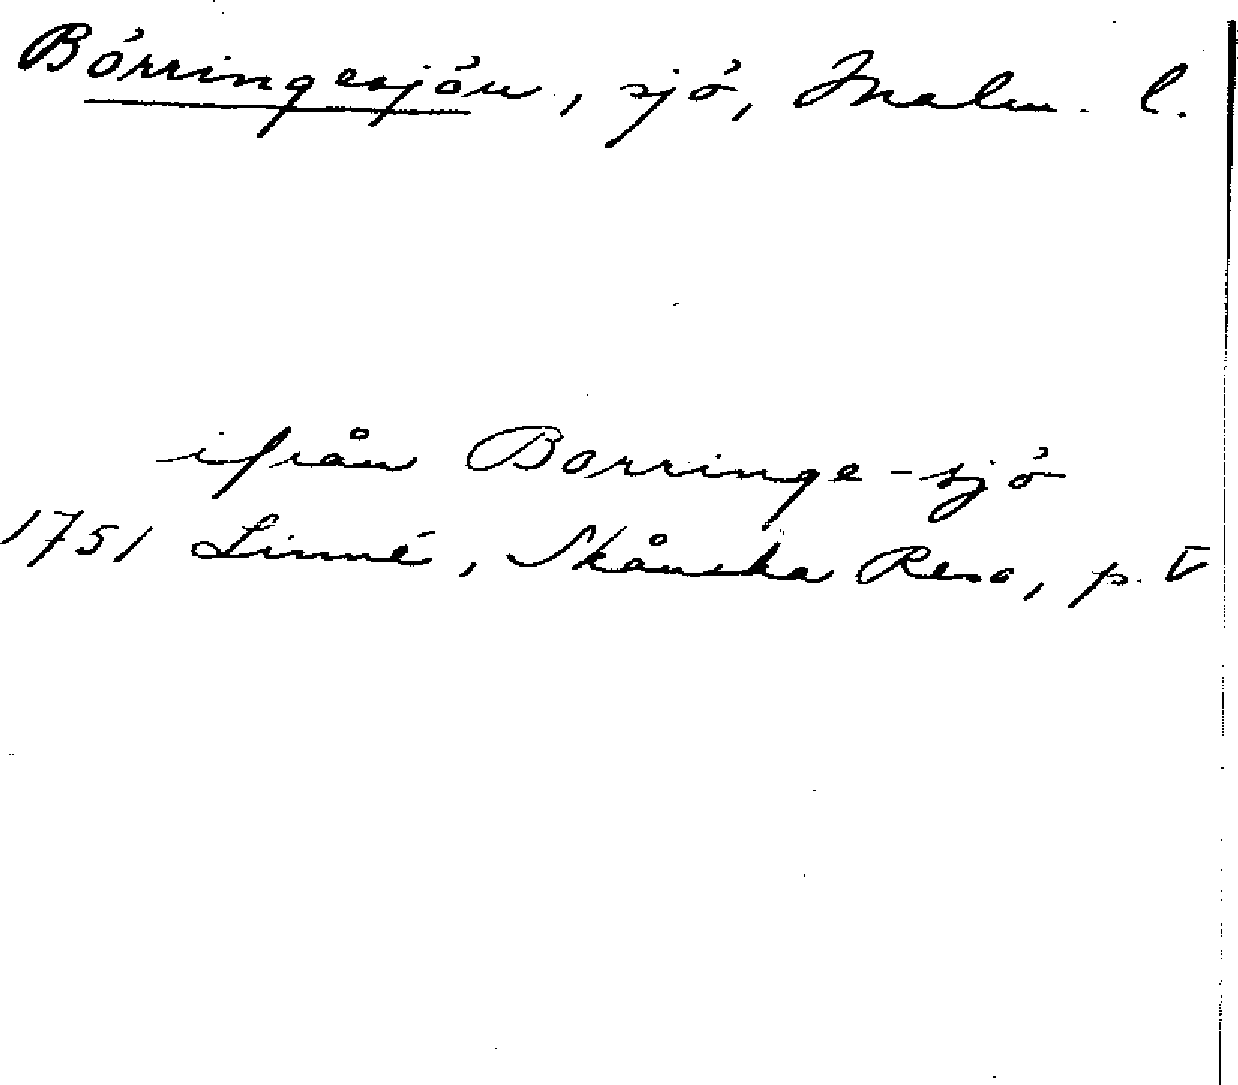 Börringesjön, sjö, Malm. l.
ifrån Borringe-sjö
1751 Linné, Skånska Resa, p. V